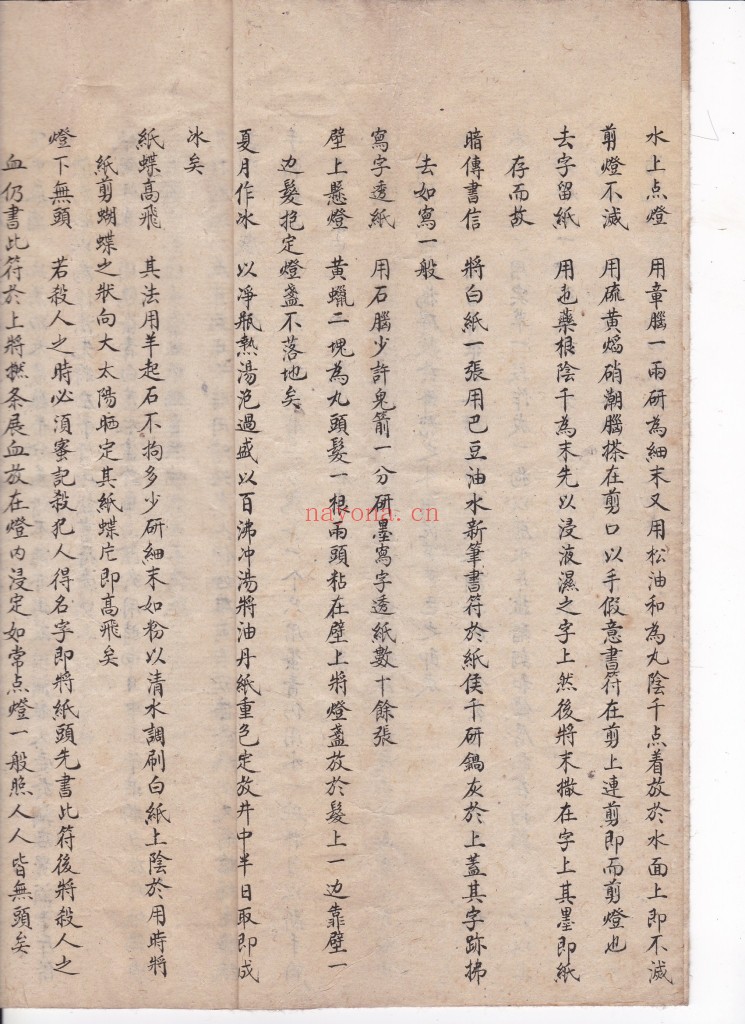 水上点燈　用章腦一兩研為細末又用松油和為丸陰干点着放於水面上即不滅
剪燈不滅　用硫黄焰硝潮腦搽在剪口以手假意書符在剪上連剪即而剪燈也
去字留紙　用也藥根陰干為末先以浸液濕之字上然後將末撒在字上其墨即紙
存而故
暗傳書信　將白紙一張用巴豆油水新筆書符於紙侯干研鍋灰於上蓋其字跡拂
去如寫一般
寫字透紙　用石腦少許鬼箭一分研墨寫字透紙數十餘張
壁上懸燈　黄蠟二塊為丸頭髮一根兩頭粘在壁上將燈盞放於髮上一边靠壁一
边髮抱定燈盞不落地矣
夏月作冰　以凈瓶熱湯泡過盛以百沸冲湯將油丹紙重包定放井中半日取即成
冰矣
紙蝶高飛　其法用羊起石不拘多少研細末如粉以清水調刷白紙上陰於用時將
紙剪蝴蝶之狀向大太陽晒定其紙蝶庀即高飛矣
燈下無頭　若殺人之時必須蜜記殺犯人得名字即將紙頭先書此符後將殺人之
血仍書此符於上將撚条展血放在燈内浸定如常点燈一般照人人皆無頭矣
nayona.cn